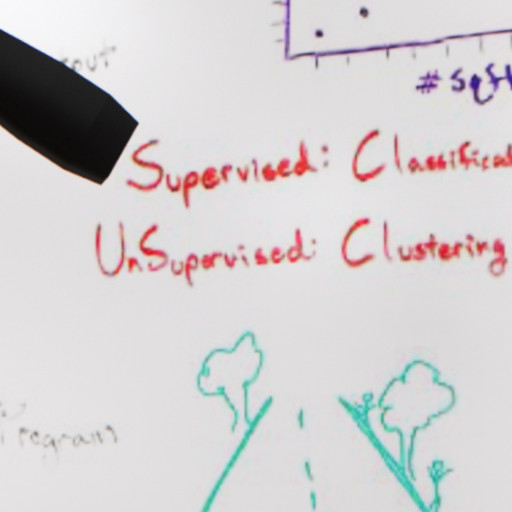 # sqft
Supervised: Classifica
UnSupervised: Clustering